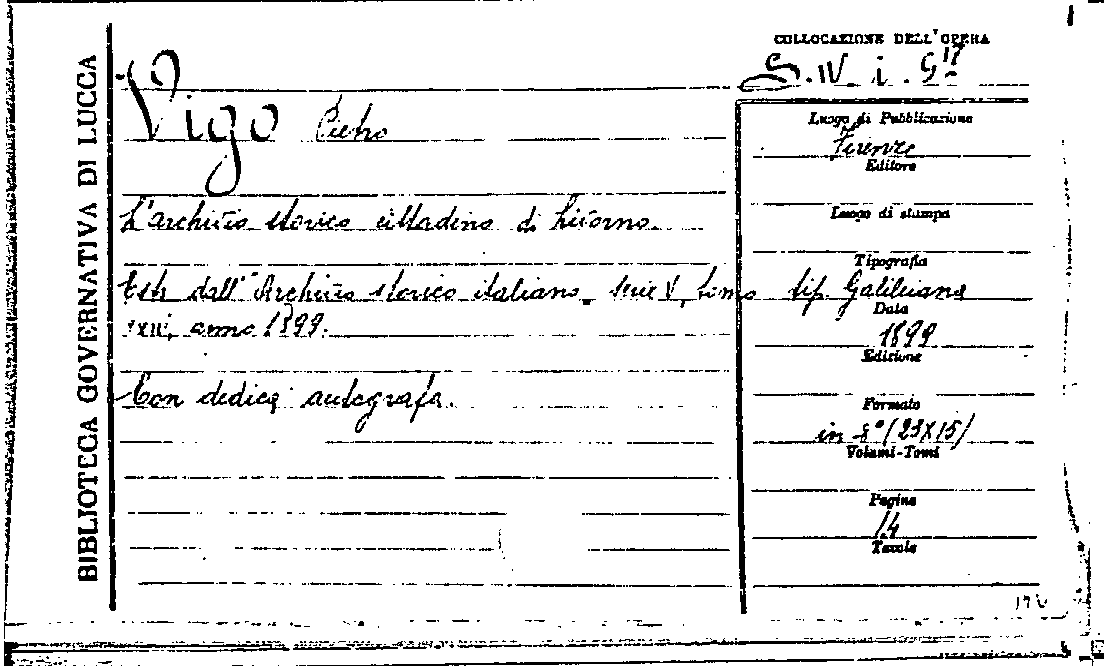 BIBLIOTECA GOVERNATIVA DI LUCCA
COLLOCAZIONE DELL'OPERA
Vigo Pietro
L'archivio storico cittadino di Livorno.
Estr. dall'Archivio storico italiano, serie V, tomo
XXIII, anno 1899.
Con dedica autografa.
Luogo di Pubblicazione
Firenze
Editore
Luogo di stampa
Tipografia
tip. Galileiana
Data
1899
Edizione
Formato
in 8° (23X15)
Volumi-Tomi
Pagine
14
Tavole